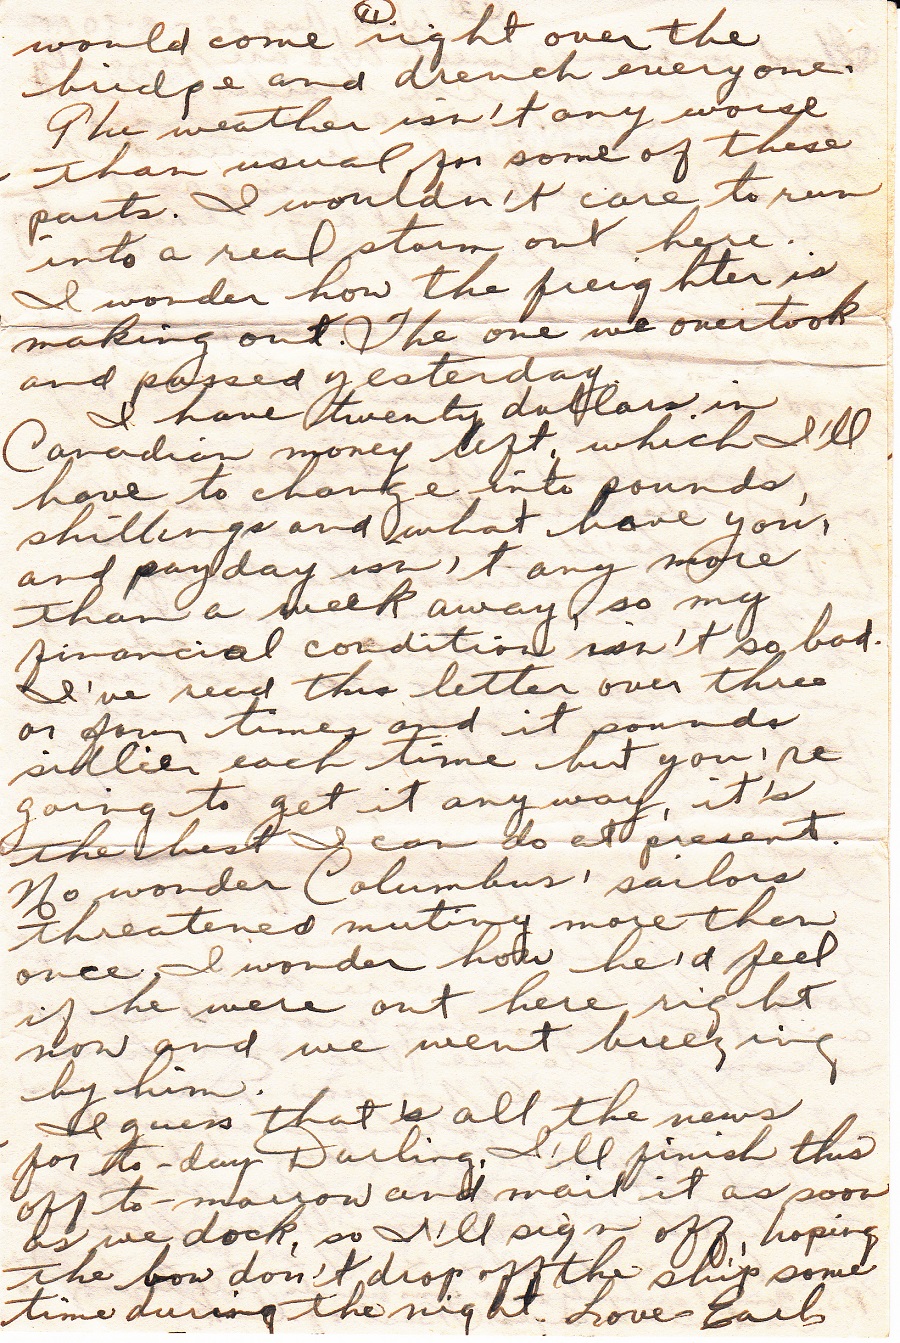 11
would come right over the
bridge and drench everyone.
The weather isn't any worse
than usual for some of these
parts. I wouldn't care to run
into a real storm out here.
I wonder how the freighter is
making out. The one we overtook
and passed yesterday.
I have twenty dollars in
Canadian money left, which I'll
have to change into pounds,
shillings and what have you,
and payday isn't any more
than a week away, so my
financial condition isn't so bad.
I've read this letter over three
or four times and it sounds
sillier each time but you're
going to get it any way, it's
the best I can do at present.
No wonder Columbus' sailors
threatened mutiny more than
once. I wonder how he'd feel
if he were out here right
now and we went breezing
by him.
I guess that's all the news
for to-day Darling, I'll finish this
off to-morrow and mail it as soon
as we dock, so I'll sign off, hoping
the bow don't drop off the ship some
time during the night. Love Earl